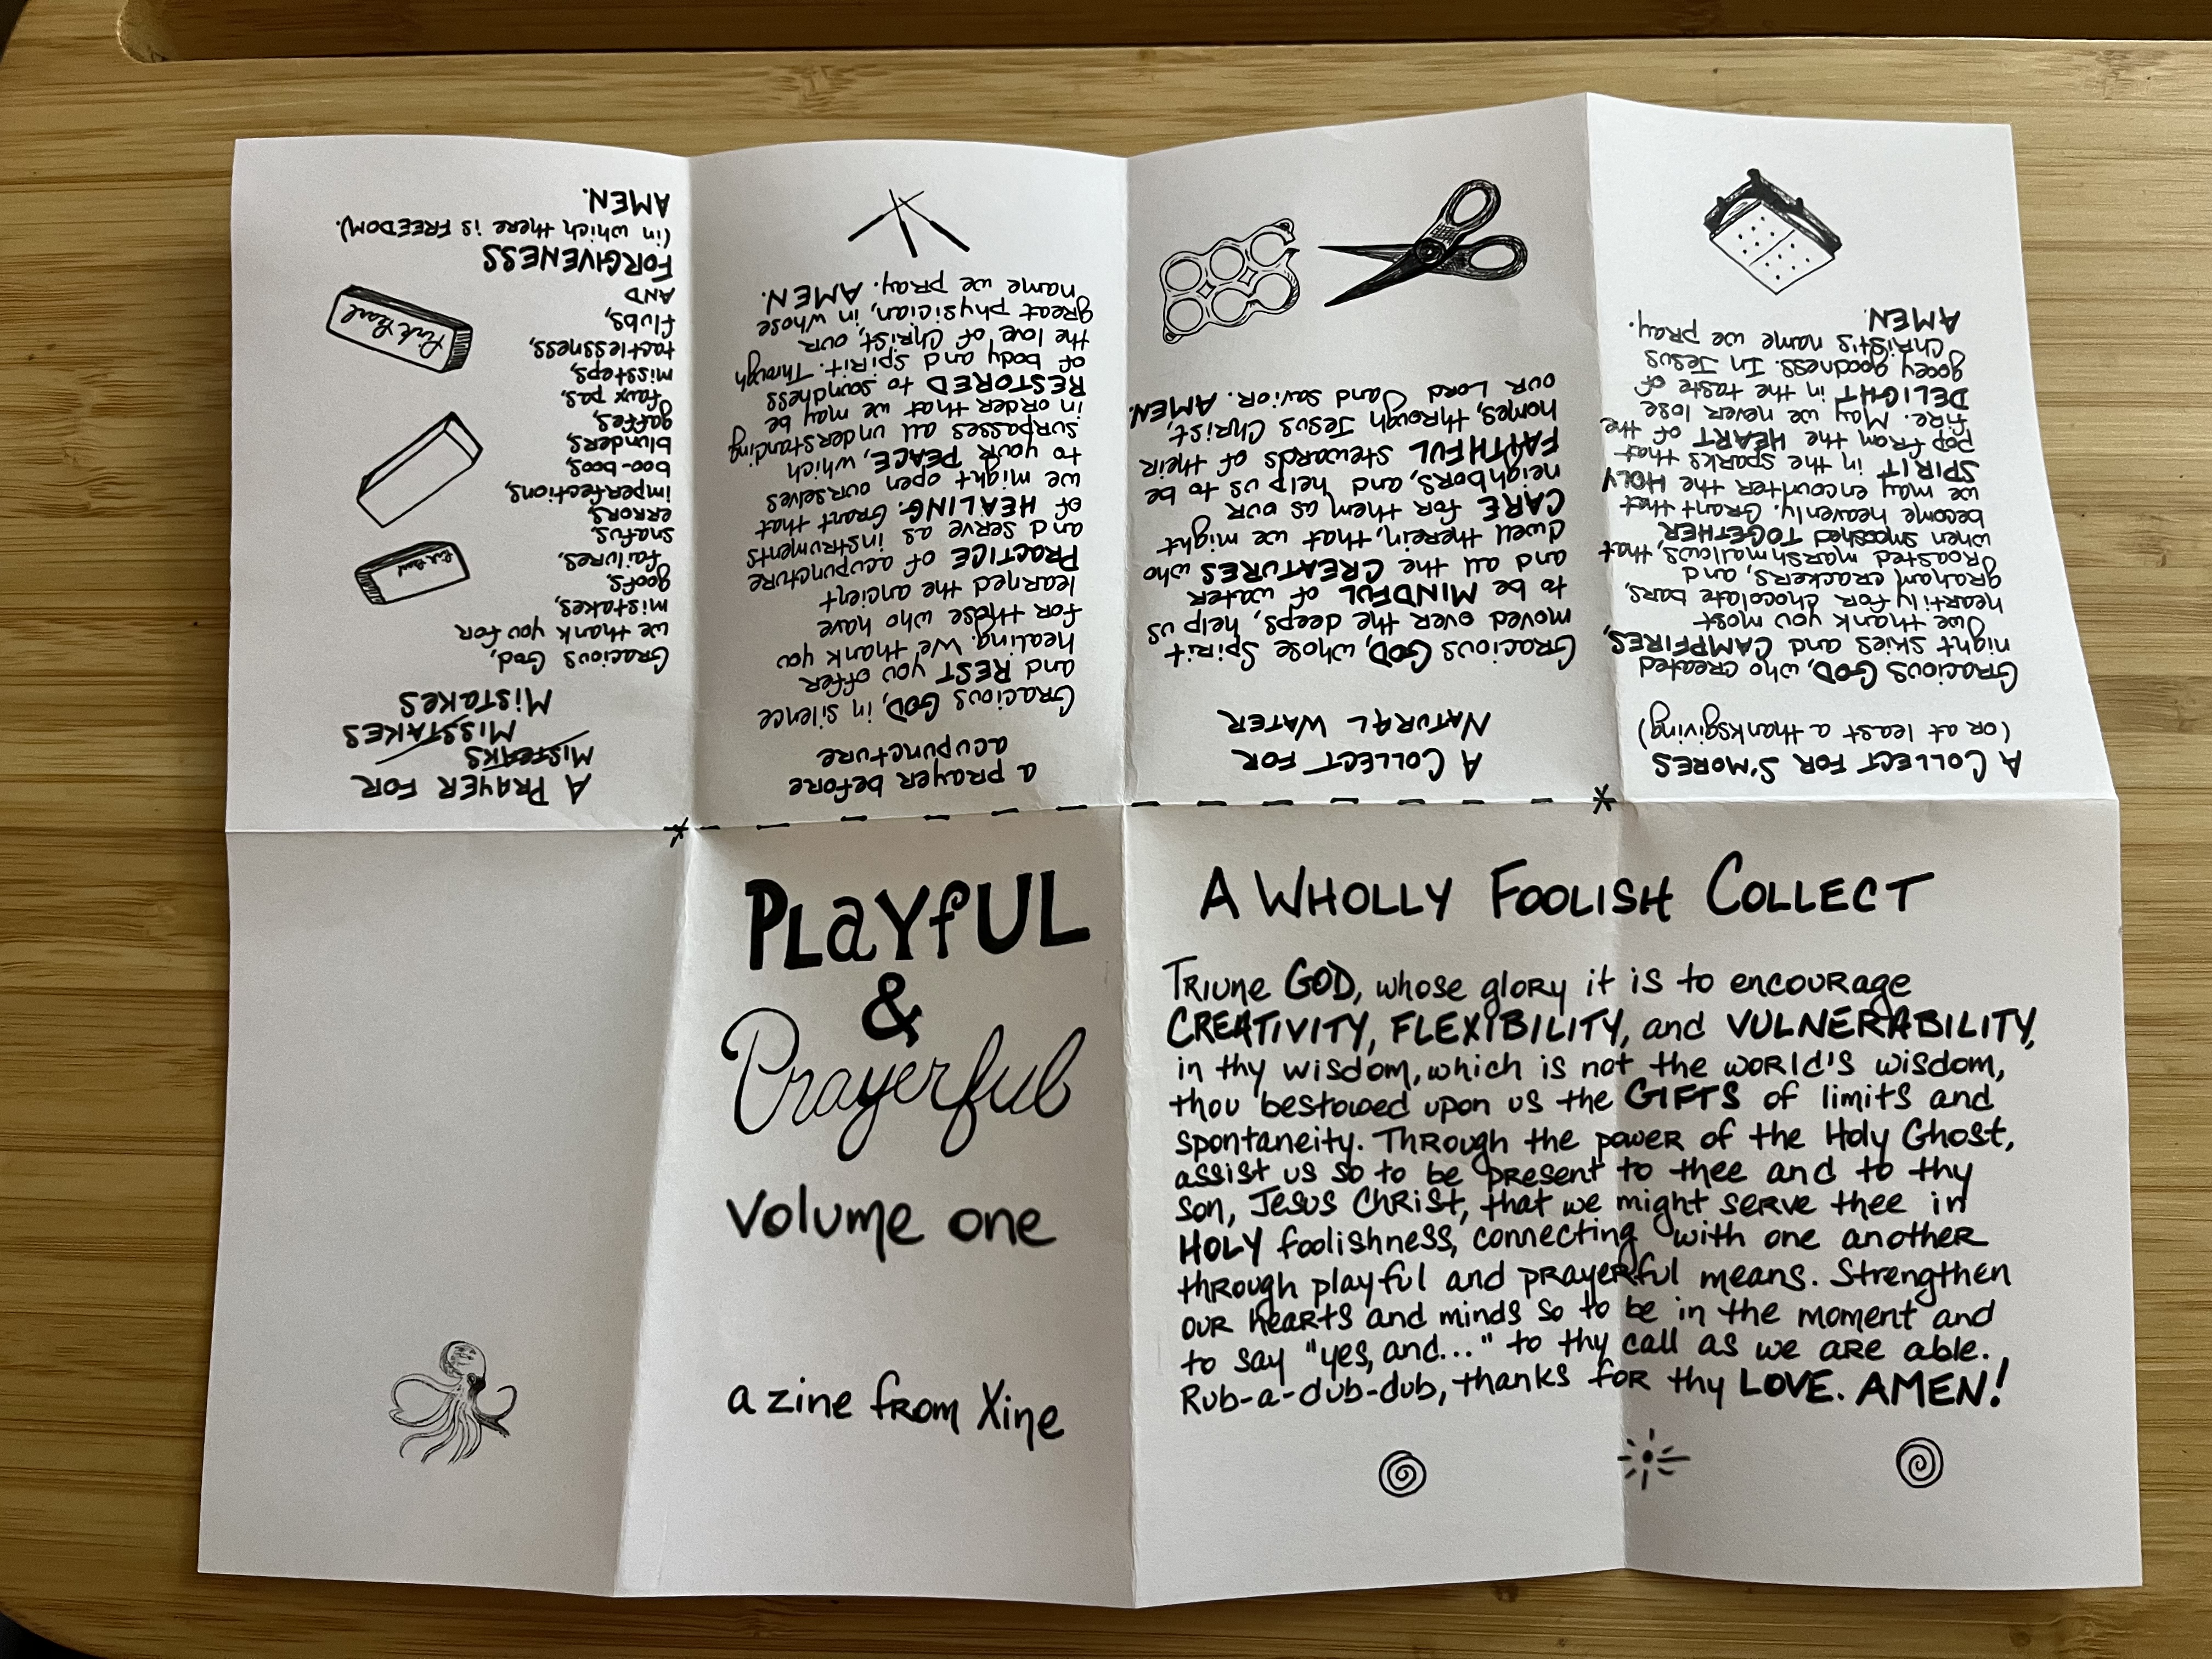 PLAYFUL
&
Prayerful
Volume one
a zine from Xine
A WHOLLY FOOLISH COLLECT
Triune GOD, whose glory it is to encourage
CREATIVITY, FLEXIBILITY, and VULNERABILITY,
in thy wisdom, which is not the world's wisdom,
thou bestowed upon us the GIFTS of limits and
spontaneity. Through the power of the Holy Ghost,
assist us so to be present to thee and to thy
son, Jesus Christ, that we might serve thee in
HOLY foolishness, connecting with one another
through playful and prayerful means. Strengthen
our hearts and minds so to be in the moment and
to say "yes, and..." to thy call as we are able.
Rub-a-dub-dub, thanks for thy LOVE. AMEN!
A COLLECT FOR S'MORES
(or at least a thanksgiving)
Gracious GOD, who created
night skies and CAMPFIRES,
we thank you most
heartily for chocolate bars,
graham crackers, and
roasted marshmallows, that
when smooshed TOGETHER
become heavenly. Grant that
we may encounter the HOLY
SPIRIT in the sparks that
pop from the HEART of the
fire. May we never lose
DELIGHT in the taste of
gooey goodness. In Jesus
Christ's name we pray.
AMEN.
A COLLECT FOR
NATURAL WATER
Gracious GOD, whose Spirit
moved over the deeps, help us
to be MINDFUL of water
and all the CREATURES who
dwell therein, that we might
CARE for them as our
neighbors, and help us to be
FAITHFUL stewards of their
homes, through Jesus Christ,
our Lord and Savior. AMEN.
a prayer before
acupuncture
Gracious GOD, in silence
and REST you offer
healing. We thank you
for those who have
learned the ancient
PRACTICE of acupuncture
and serve as instruments
of HEALING. Grant that
we might open ourselves
to your PEACE, which
surpasses all understanding
in order that we may be
RESTORED to soundness
of body and spirit. Through
the love of Christ, our
great physician, in whose
name we pray. AMEN.
A PRAYER FOR
MISTEAKS
MISSTAKES
MISTAKES
Gracious God,
we thank you for
mistakes,
goofs,
failures,
snafus,
errors,
imperfections,
boo-boos,
blunders,
gaffes,
faux pas,
missteps,
tactlessness,
flubs,
AND
FORGIVENESS
(in which there is FREEDOM).
AMEN.
Pink Pearl
Pink Pearl